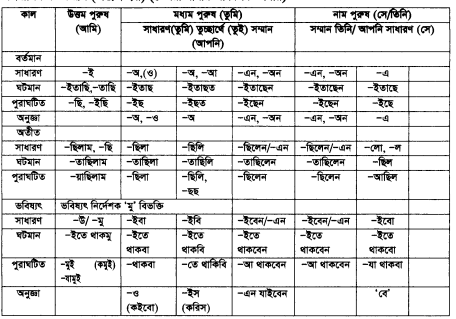 কাল উত্তম পুরুষ মধ্যম পুরুষ (তুমি) নাম পুরুষ (সে/তিনি)
(আমি) সাধারণ(তুমি) তুচ্ছার্থে (তুই) সম্মান সম্মান তিনি/ আপনি সাধারণ (সে)
(আপনি)
বর্তমান
সাধারণ –ই –অ,(ও) –অ, –আ –এন, –অন –এন, –অন –এ
ঘটমান –ইতাছি,–তাছি –ইতাছ –ইতাছত –ইতাছেন –ইতাছেন –ইতাছে
পুরাঘটিত –ছি, –ইছি –ইছ –ইছত –ইছেন –ইছেন –ইছে
অনুজ্ঞা –অ, –ও –অ –এন, –অন –এন, –অন –এ
অতীত
সাধারণ –ছিলাম, –ছি –ছিলা –ছিলি –ছিলেন/–এন –ছিলেন/–এন –লো, –ল
ঘটমান –তাছিলাম –তাছিলা –তাছিলি –তাছিলেন –তাছিলেন –ছিল
পুরাঘটিত –য়াছিলাম –ছিলা –ছিলি, –ছিলেন –ছিলেন –আছিল
–ছছ
ভবিষ্যৎ ভবিষ্যৎ নির্দেশক 'মু' বিভক্তি
সাধারণ –উ/ –মু –ইবা –ইবি –ইবেন/–এন –ইবেন/–এন –ইবো
ঘটমান –ইতে থাকমু –ইতে –ইতে –ইতে –ইতে –ইতে
থাকবা থাকবি থাকবেন থাকবেন থাকবো
পুরাঘটিত –মুই (কমুই) –থাকবা –তে থাকিবি –আ থাকবেন –আ থাকবেন –যা থাকবা
–যামুই
অনুজ্ঞা –ও –ইস –এন যাইবেন 'বে'
(কইবো) (করিস)